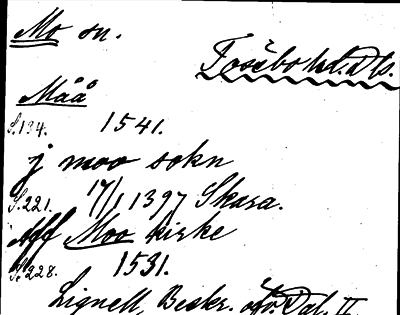 Mo sn.
Tössbo hd. Dls.
Måå
S.194. 1541.
j moo sokn
S.221. 17/1 1397 Skara.
Aff Moo kirke
S.228. 1531.
Lignell, Beskr. öfv. Dal. II.